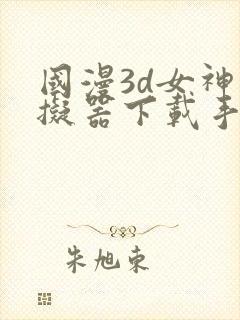 國漫3d女神
擬器下載手
朱旭東